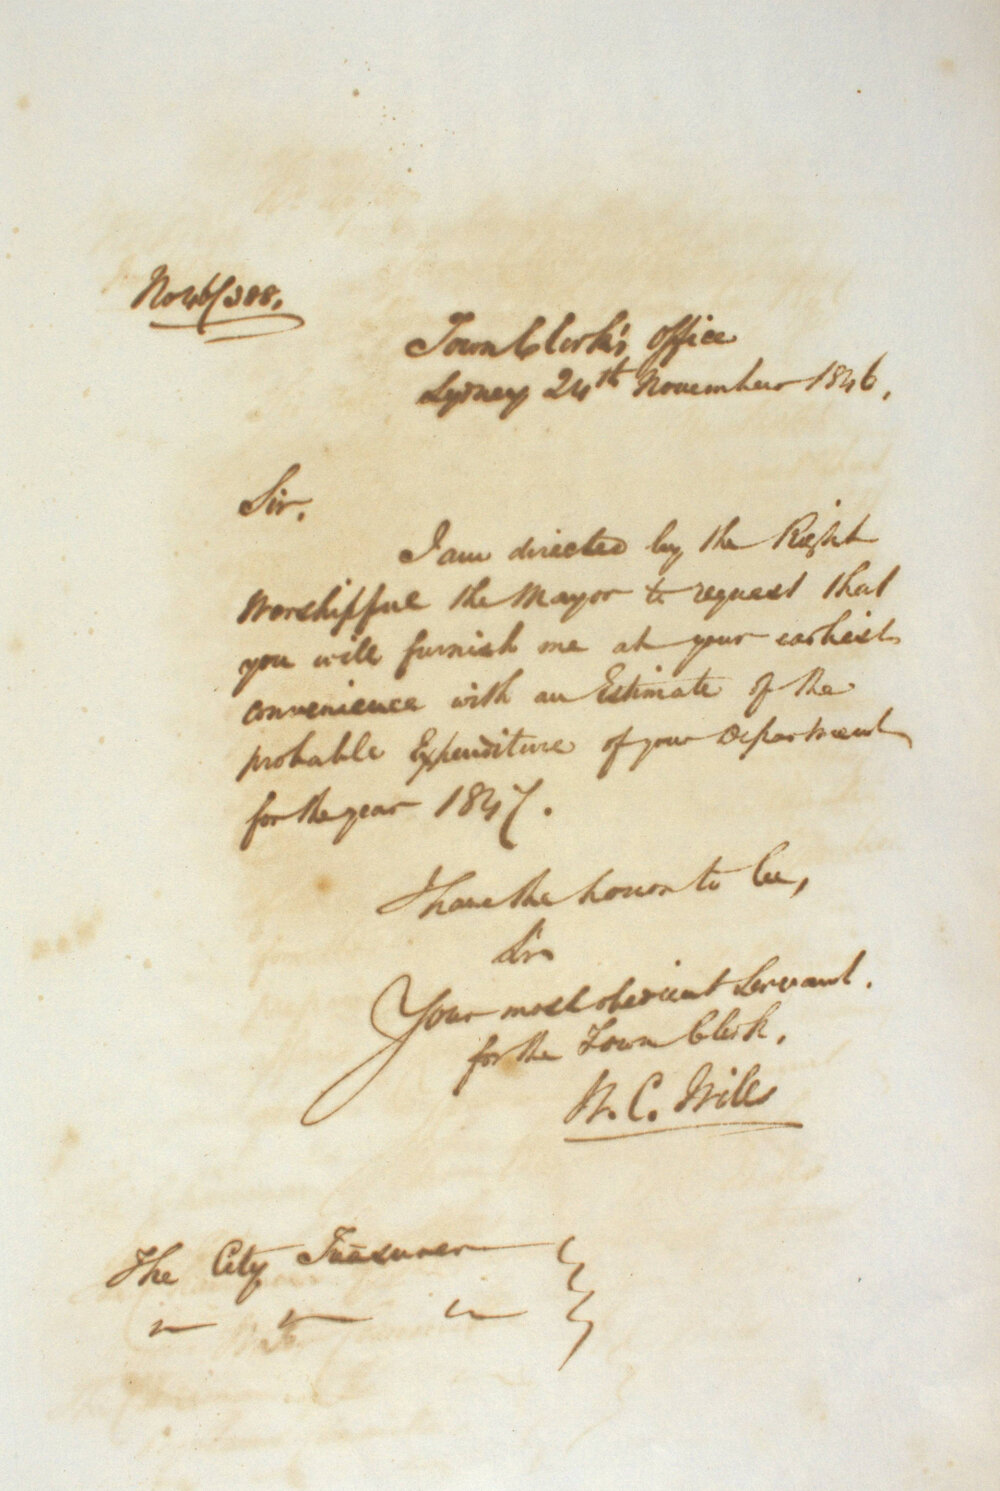 No 46/388.
Town Clerk's Office
Sydney 24th November 1846.
Sir,
I am directed by the Right
Worshipful the Mayor to request that
you will furnish me at your earliest
convenience with an Estimate of the
probable Expenditure of your Department
for the year 1847.
I have the honor to be,
Sir
Your most obedient Servant.
for the Town Clerk.
W. C. Wills
The City Treasurer